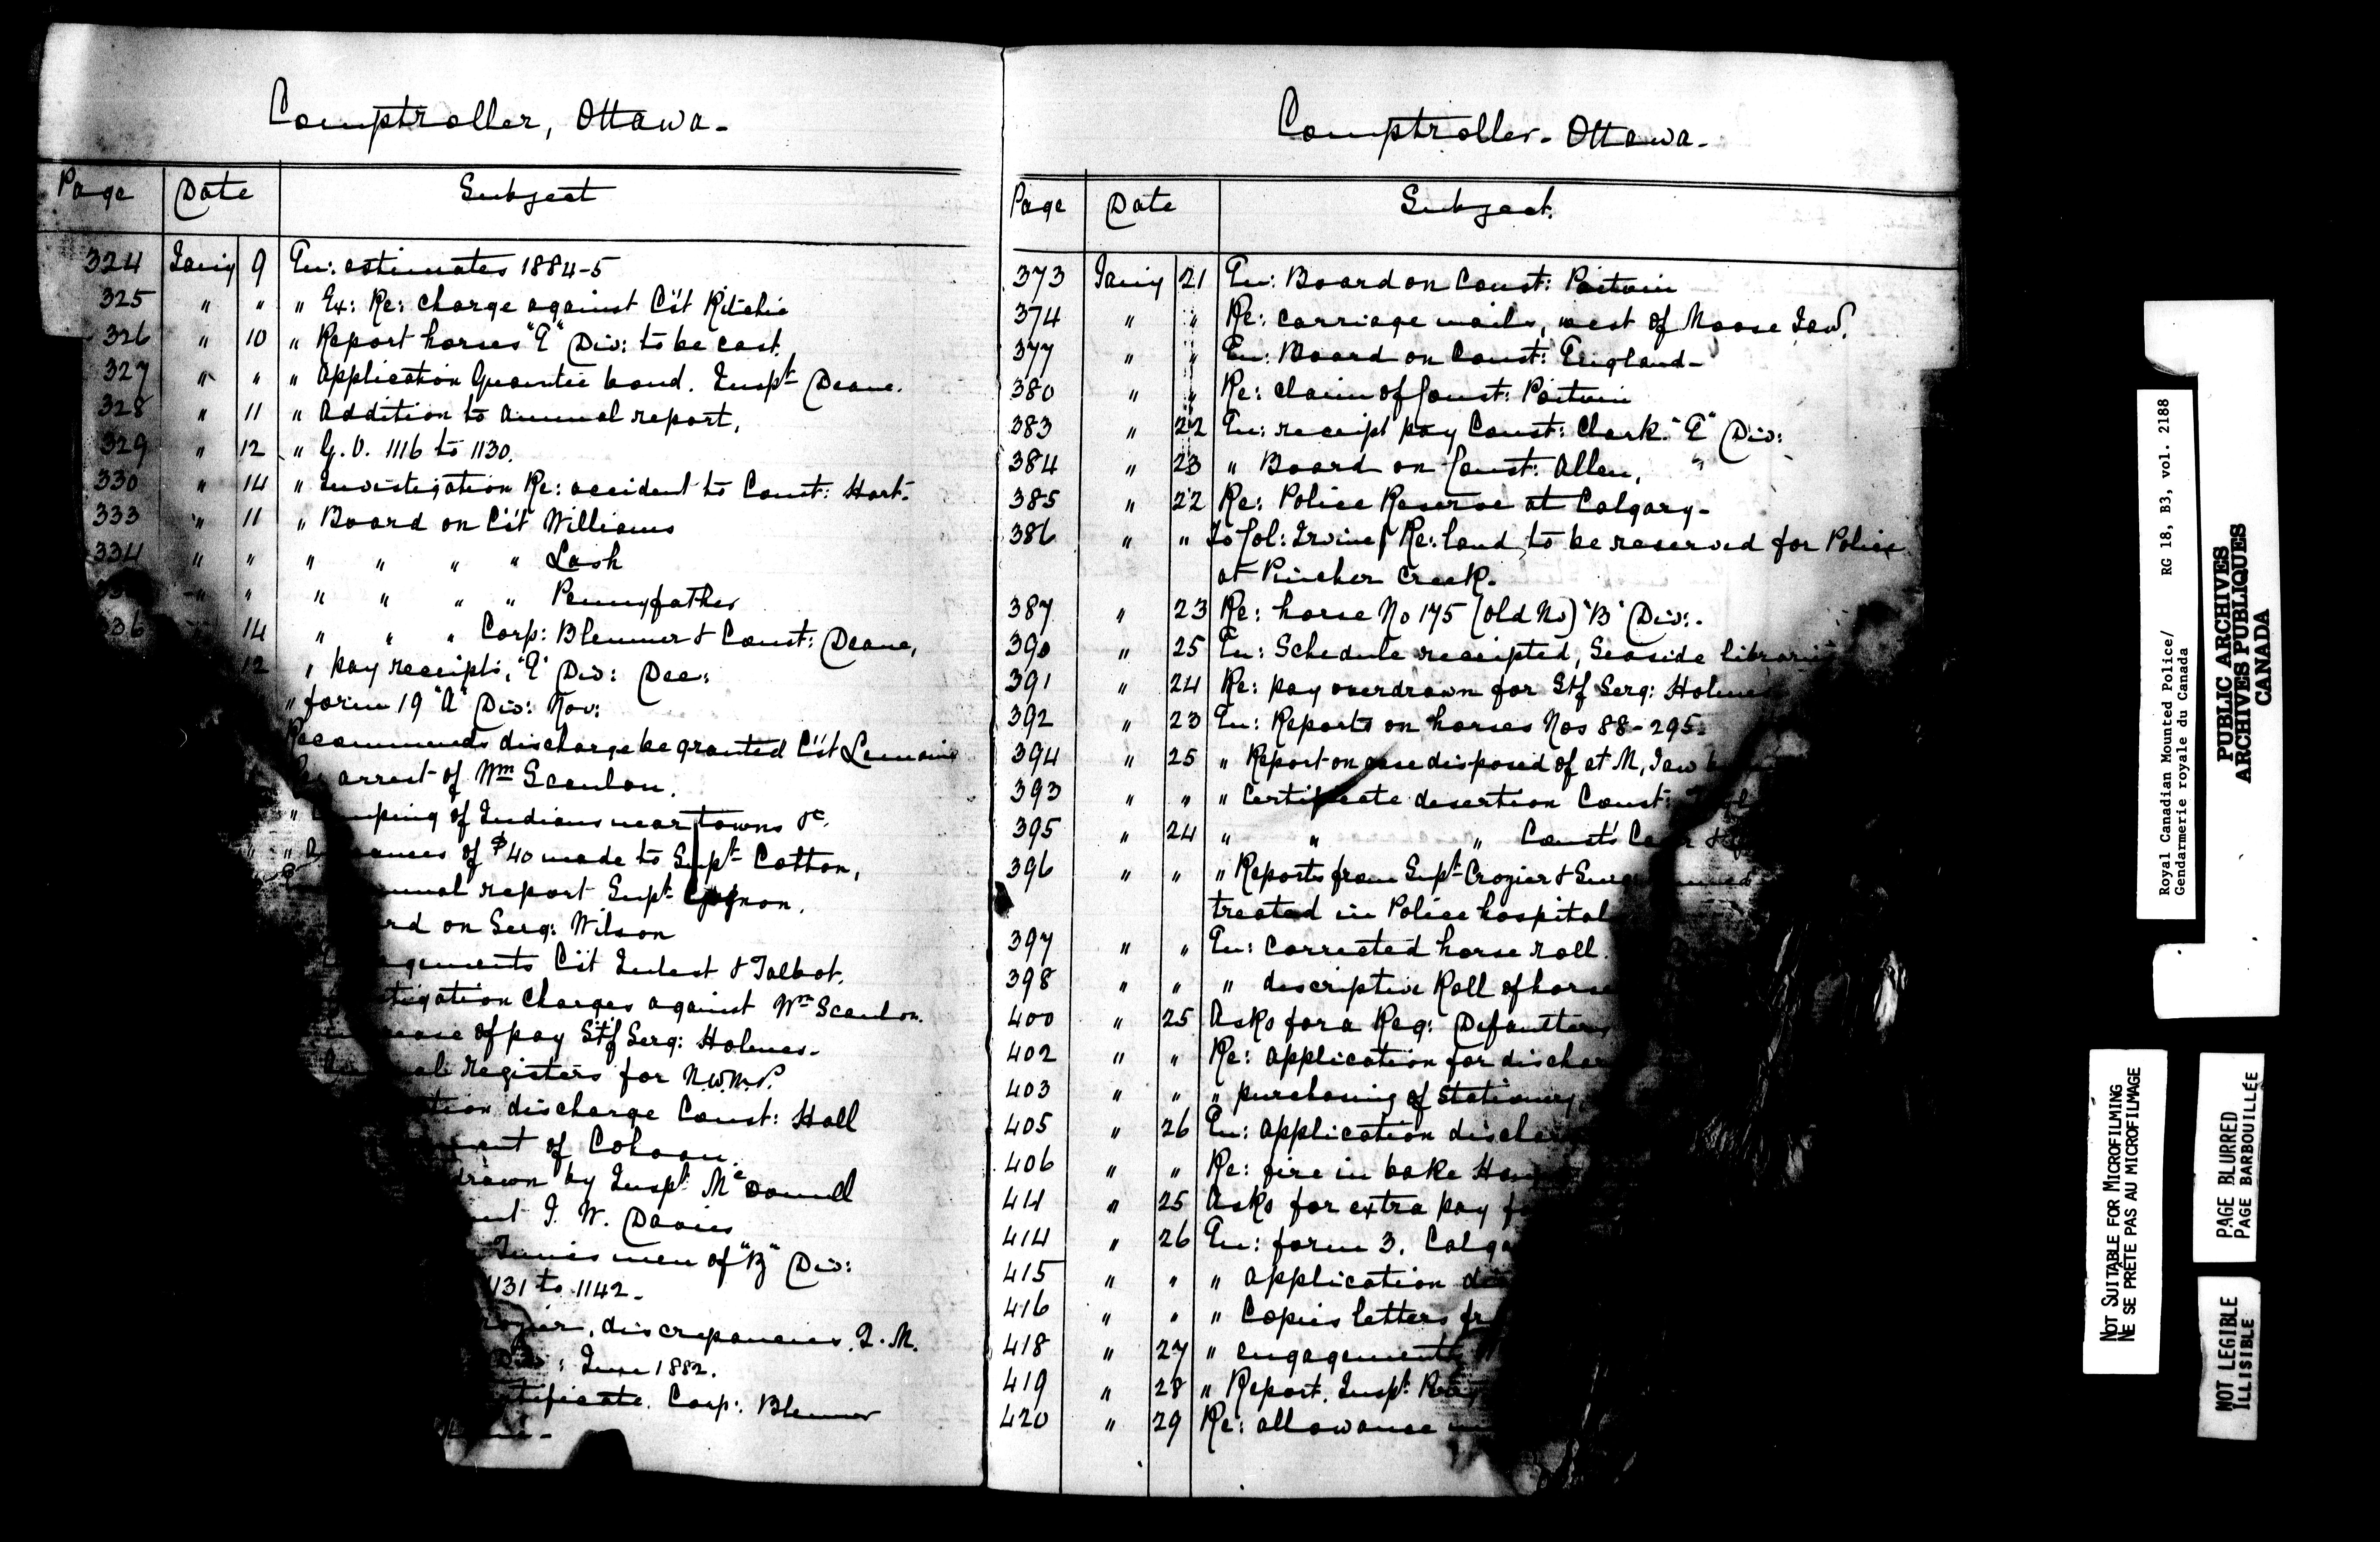 Comptroller, Ottawa.
Page Date Subject
324 Jan'y 9 En: estimates 1884-5
325 " " " Ex: Re: charge against C'st Ritchie
326 " 10 " Report horses "E" Div: to be cast.
327 " " " Application Guarantee bond. Inspt Deane.
328 " 11 " Addition to Annual report,
329 " 12 " G.O. 1116 to 1130.
330 " 14 " Investigation Re: accident to Const: Hart.
333 " 11 " Board on C'st Williams
334 " " " " " " Lash
" " " " " Pennyfather
336 14 " " " Corp: Blenner & Const: Deane,
12 " pay receipts, "E" Div: Dec:
" form 19 "A" Div: Nov:
Recommends discharge be granted C'st Lemaire
arrest of Wm Scanlon.
of Indians near towns &c.
of $40 made to Supt Cotton,
report Supt
on Serg: Wilson
C'st & Talbot.
Charges against Wm Scanlon.
of pay Stf Serg: Holmes.
registers for N.W.M.P.
discharge Const: Hall
of
drawn by Inspt McDonell
J. W. Davies
men of "B" Div:
1131 to 1142.
discrepancies, Q.M.
: June 1882.
Corp: Blenner
Comptroller. Ottawa.
Page Date Subject.
373 Jan'y 21 En: Board on Const: Poitvin
374 " " Re: carriage mails, west of Moose Jaw.
377 " " En: Board on Const: England.
380 " " Re: claim of Const: Poitvin
383 " 22 En: receipt pay Const: Clark. "E" Div:
384 " 23 " Board on Const: Allen, "
385 " 22 Re: Police Reserve at Calgary.
386 " " To Col: Irvine, Re: land, to be reserved for Police
at Pincher Creek.
387 " 23 Re: horse No 175 (old No) "B" Div:.
390 " 25 En: Schedule receipted, Seaside
391 " 24 Re: pay overdrawn for Stf Serg: Holmes
392 " 23 En: Reports on horses Nos 88-295.
394 " 25 " Report on case disposed of at M, Jaw
393 " " " Certificate desertion Const:
395 " 24 " " " Const's
396 " " " Reports from Supt Crozier &
treated in Police hospital
397 " " En: Corrected horse roll.
398 " " " descriptive Roll of
400 " 25 Asks for a Reg: Defaulters
402 " " Re: application for
403 " " " purchasing of Stationery
405 " 26 En: application
406 " " Re: fire in bake
414 " 25 Asks for extra pay
414 " 26 En: form 3.
415 " " " application
416 " " " Copies letters
418 " 27 " engagements
419 " 28 " Report. Inspt
420 " 29 Re: allowance
Royal Canadian Mounted Police/ RG 18, B3, vol. 2188
Gendarmerie royale du Canada
PUBLIC ARCHIVES
ARCHIVES PUBLIQUES
CANADA
NOT SUITABLE FOR MICROFILMING
NE SE PRÊTE PAS AU MICROFILMAGE
PAGE BLURRED
PAGE BARBOUILLÉE
NOT LEGIBLE
ILLISIBLE